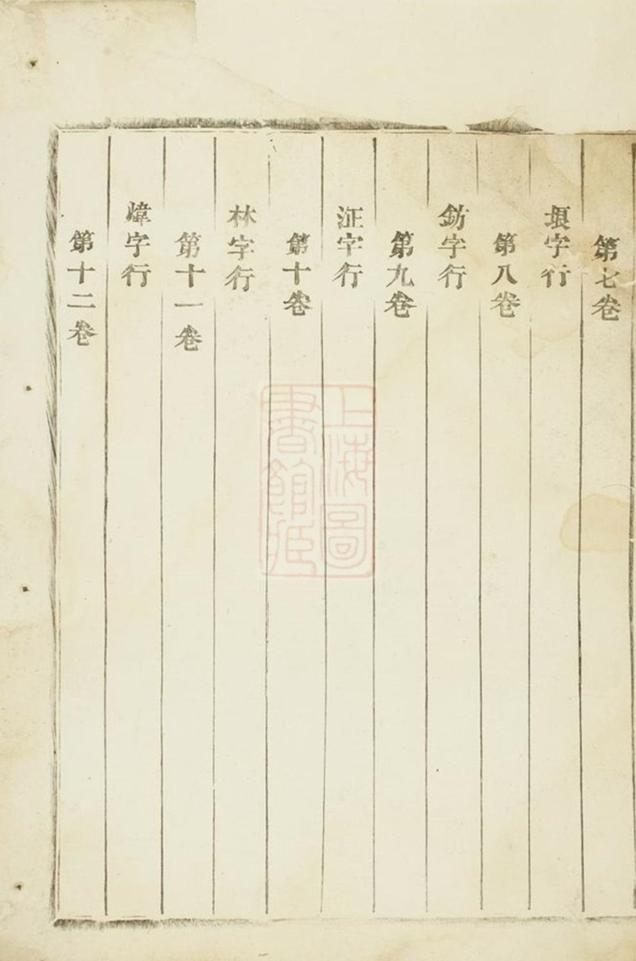 第七卷
垠字行
第八卷
鈁字行
第九卷
泟字行
第十卷
林字行
第十一卷
煒字行
第十二卷
上海圖
書館藏